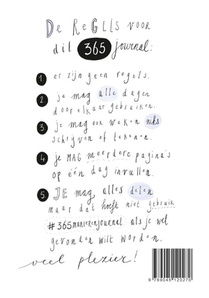 De ReGeLs voor
dit 365 journal:
1 er zijn geen regels.
2 je mag alle dagen
door elkaar gebruiken.
3 je mag een week niks
schrijven of tekenen.
4 je MAG meerdere pagina's
op één dag invullen.
5 JE mag alles delen
maar dat hoeft niet gebruik
#365manierenjournal als je wel
gevonden wilt worden.
veel plezier!
9 789045 320270